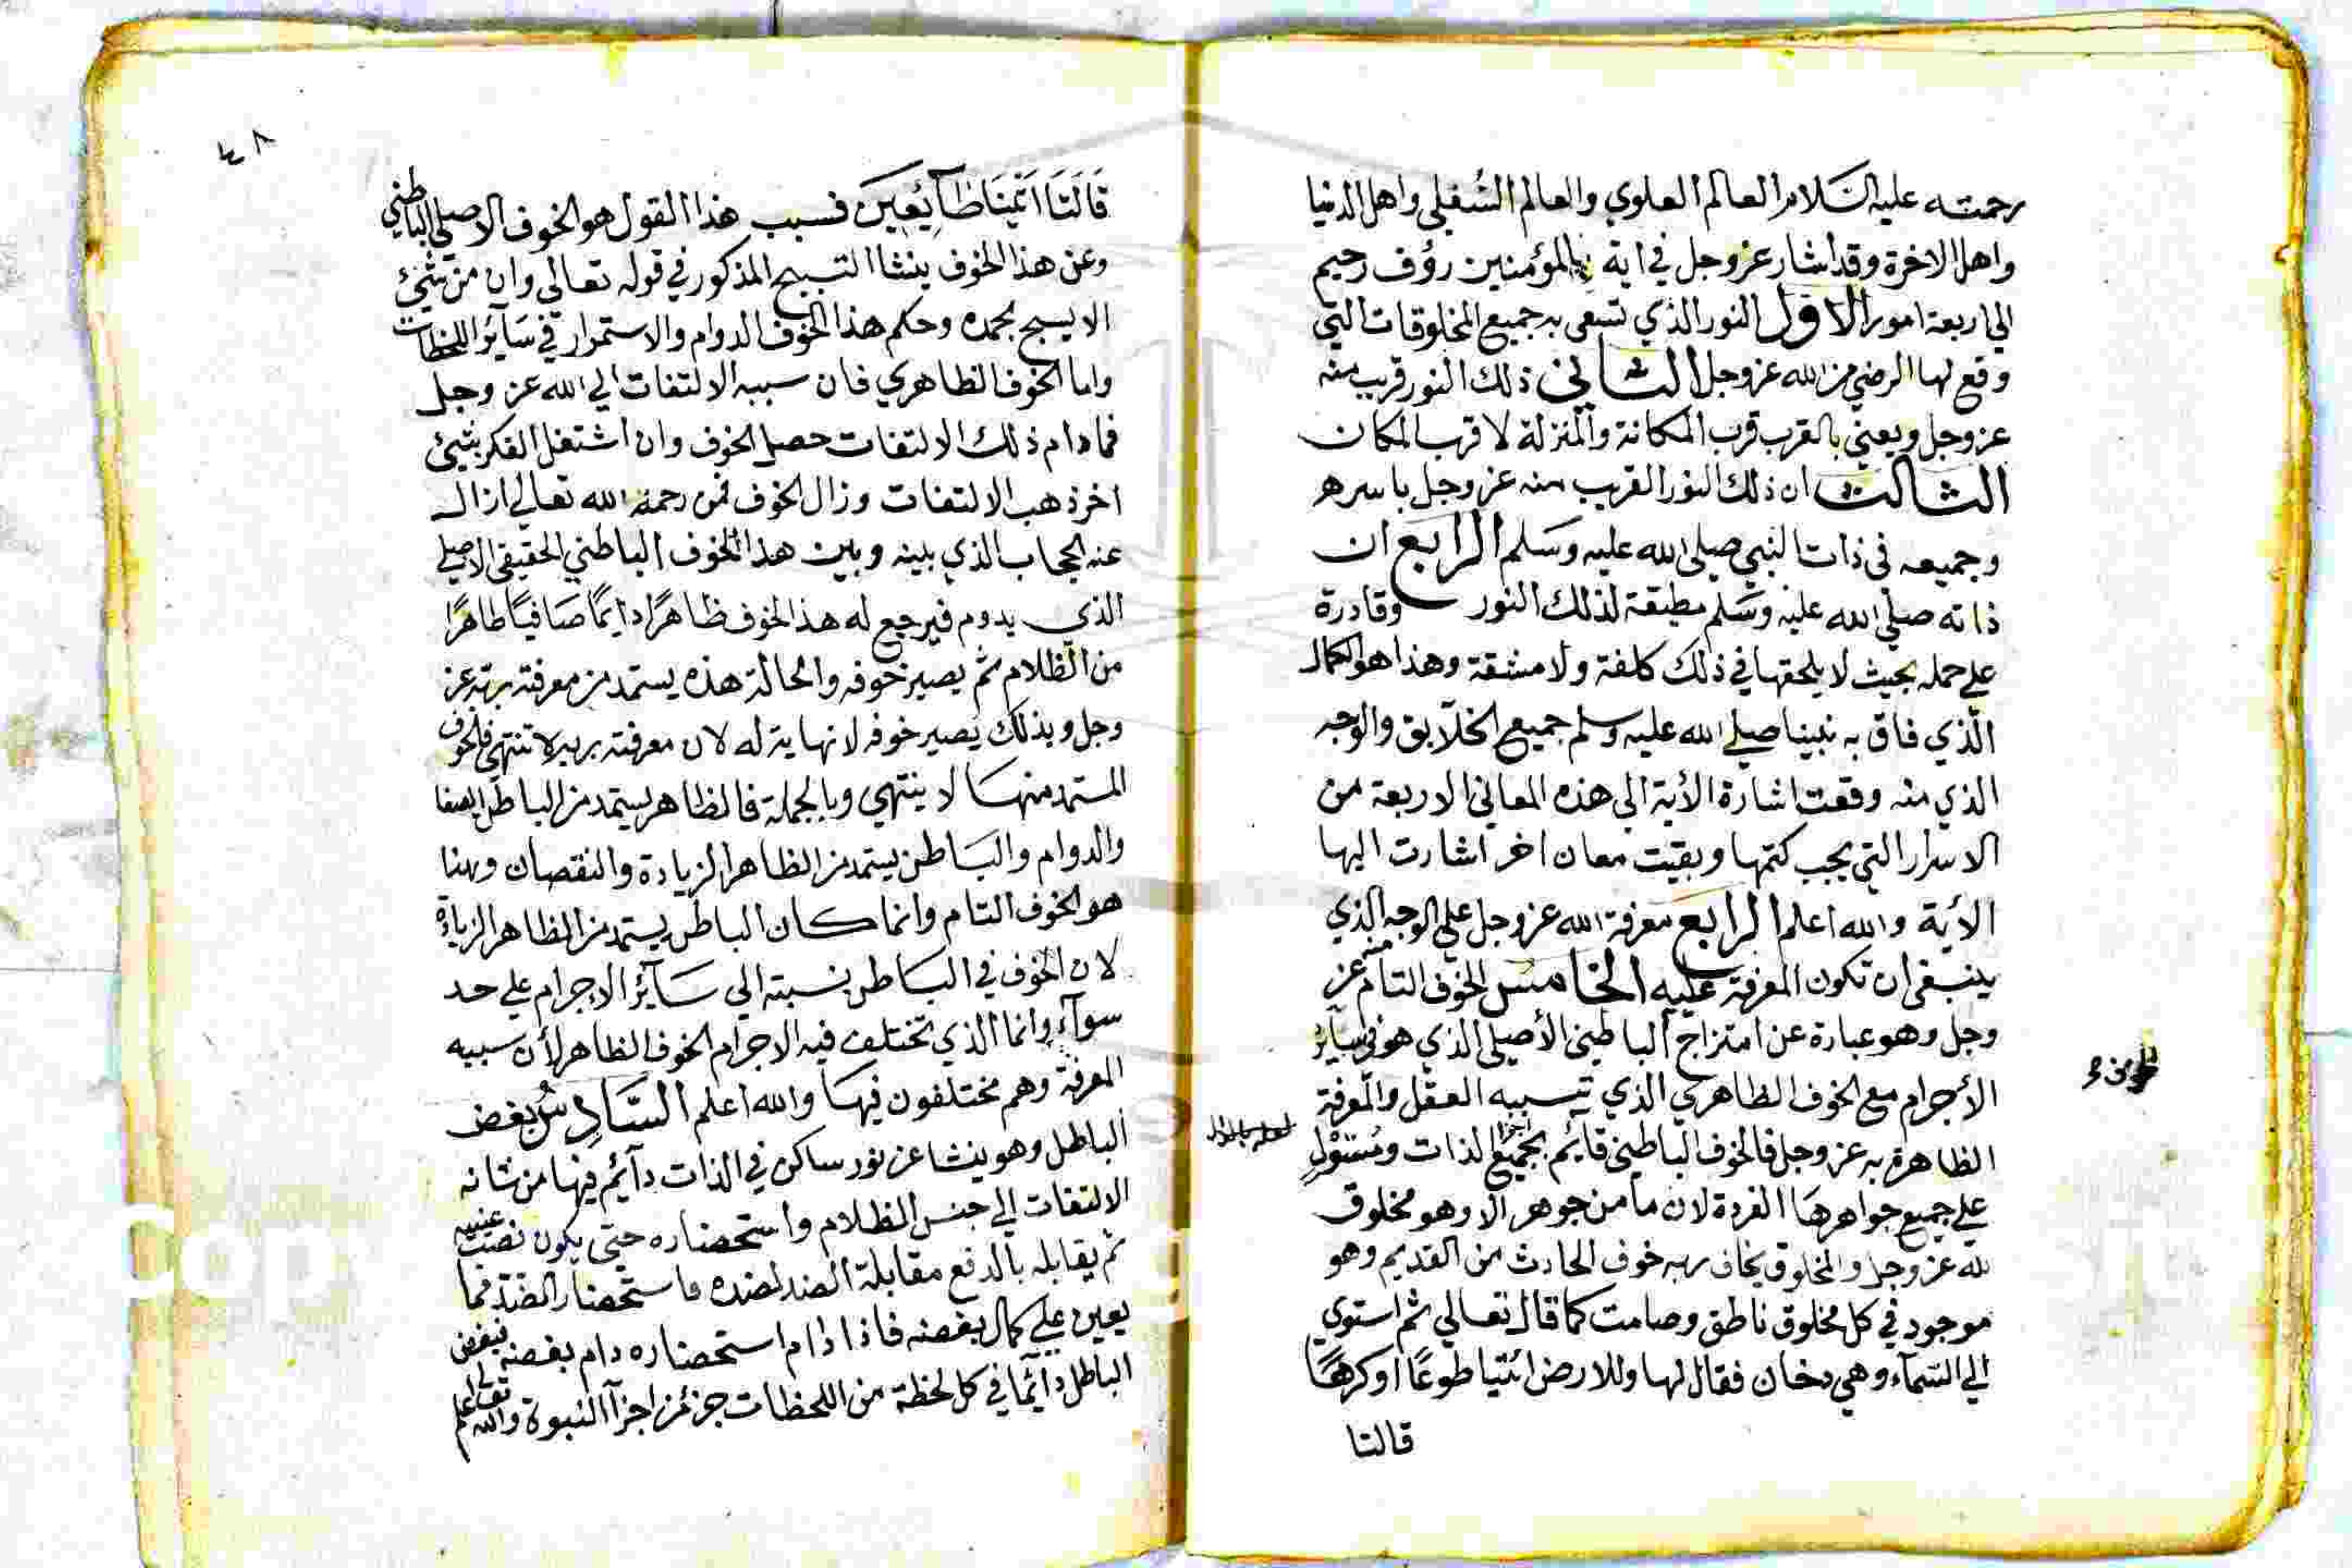 رحمته عليه السَلام العالم العلوي والعالم السُفلي واهل الدنيا
واهل الاخرة وقد اشار عز وجل في اية بالمؤمنين رؤف رحيم
الي اربعة امور الاول النور الذي تسقي به جميع المخلوقات التي
وقع لها الرضي من الله عز وجل الثاني ذلك النور قريب منه
عز وجل ويعني بالقرب قرب المكانة والمنزلة لا قرب المكان
الثالث ان ذلك النور القريب منه عز وجل باسره
وجميعه في ذات النبي صلى الله عليه وَسَلم الرابع ان
ذاته صلي الله عليه وسَلم مطيقة لذلك النور وقادرة
علي حمله بحيث لا يلحقها في ذلك كلفة ولا مشقة وهذا هو الكمال
الّذي فاق به نبينا صلي الله عليه وسلم جميع الخلآيق والوجه
الذي منه وقعت اشارة الأية الى هذه المعاني الاربعة من
الاسرار التي يجب كتمها وبقيت معان اخر اشارت اليها
الأية والله اعلم الرابع معرفة الله عز وجل علي الوجه الذي
ينبغي ان تكون المعرفة عليه الخامسُ الخوف التام منه عز
وجل وهو عبارة عن امتزاج الباطني الأصيلي الذي هو في سآير
الأجرام مع الخوف الظاهري الذي سببه العقل والمعرفة
الظاهرة به عز وجل فالخوف الباطني قايم بجميع اجزا الذات ومُسْتَوْلٍ
علي جميع جواهرهَا الفردة لان ما من جوهر الا وهو مخلوق
لله عز وجل والمخلوق يخاف ربه خوف الحادث من القديم وهو
موجود في كل مخلوق ناطق وصامت كما قال تعالي ثم استوي
الي السّمآء وهي دخان فقال لها وللارض ائتيا طوعًا او كرهًا
قالتا
٤٨
قَالَتَا اَتَيْنَا طَآئِعِينَ فسبب هذا القول هو الخوف الاصلي الباطني
وعن هذا الخوف ينشا التسبيح المذكور في قوله تعالي وان من شيئ
الا يسبح بحمده وحكم هذا الخوف الدوام والاستمرار في سَآير اللحظات
واما الخوف الظاهري فان سببه الالتفات الي الله عز وجل
فمادام ذلك الالتفات حصل الخوف وان اشتغل الفكر بشيئ
اخر ذهب الالتفات وزال الخوف فمن رحمه الله تعالي ازال
عنه الحجاب الذي بينه وبين هذا الخوف الباطني الحقيقي الاصلي
الذي يدوم فيرجع له هذا الخوف ظاهرًا دايمًا صَافيًا طاهرًا
من الظلام ثم يصير خوفه والحالة هذه يستمد من معرفته بربه عز
وجل وبذلك يَصير خوفه لا نهاية له لان معرفته بربه لا تنتهي فالخوف
المستمد منهَا لا ينتهي وبالجملة فالظاهر يستمد من الباطن الصفا
والدوام والبَاطن يستمد من الظاهر الزيادة والنقصان وهذا
هو الخوف التام وانما كان الباطن يستمد من الظاهر الزيادة
لان الخوف في البَاطن نسبته الي سَآئر الاجرام علي حد
سوآء وانما الذي تختلف فيه الاجرام الخوف الظاهر لأن سببه
المعرفة وهم مختلفون فيهَا والله اعلم السَّادِسُ بغض
الباطل وهو ينشا عن نور ساكن في الذات دآئم فيها من شانه
الالتفات الي جنس الظلام واستحضاره حتى يكون نصب عينيه
ثم يقابله بالدفع مقابلة الضد لضده فاستحضار الضد مما
يعين علي كمال بغضه فاذا دام استحضاره دام بغضه فبغض
الباطل دآئمًا في كل لحظة من اللحظات جزئ من اجزآ النبوة والله تعالى اعلم